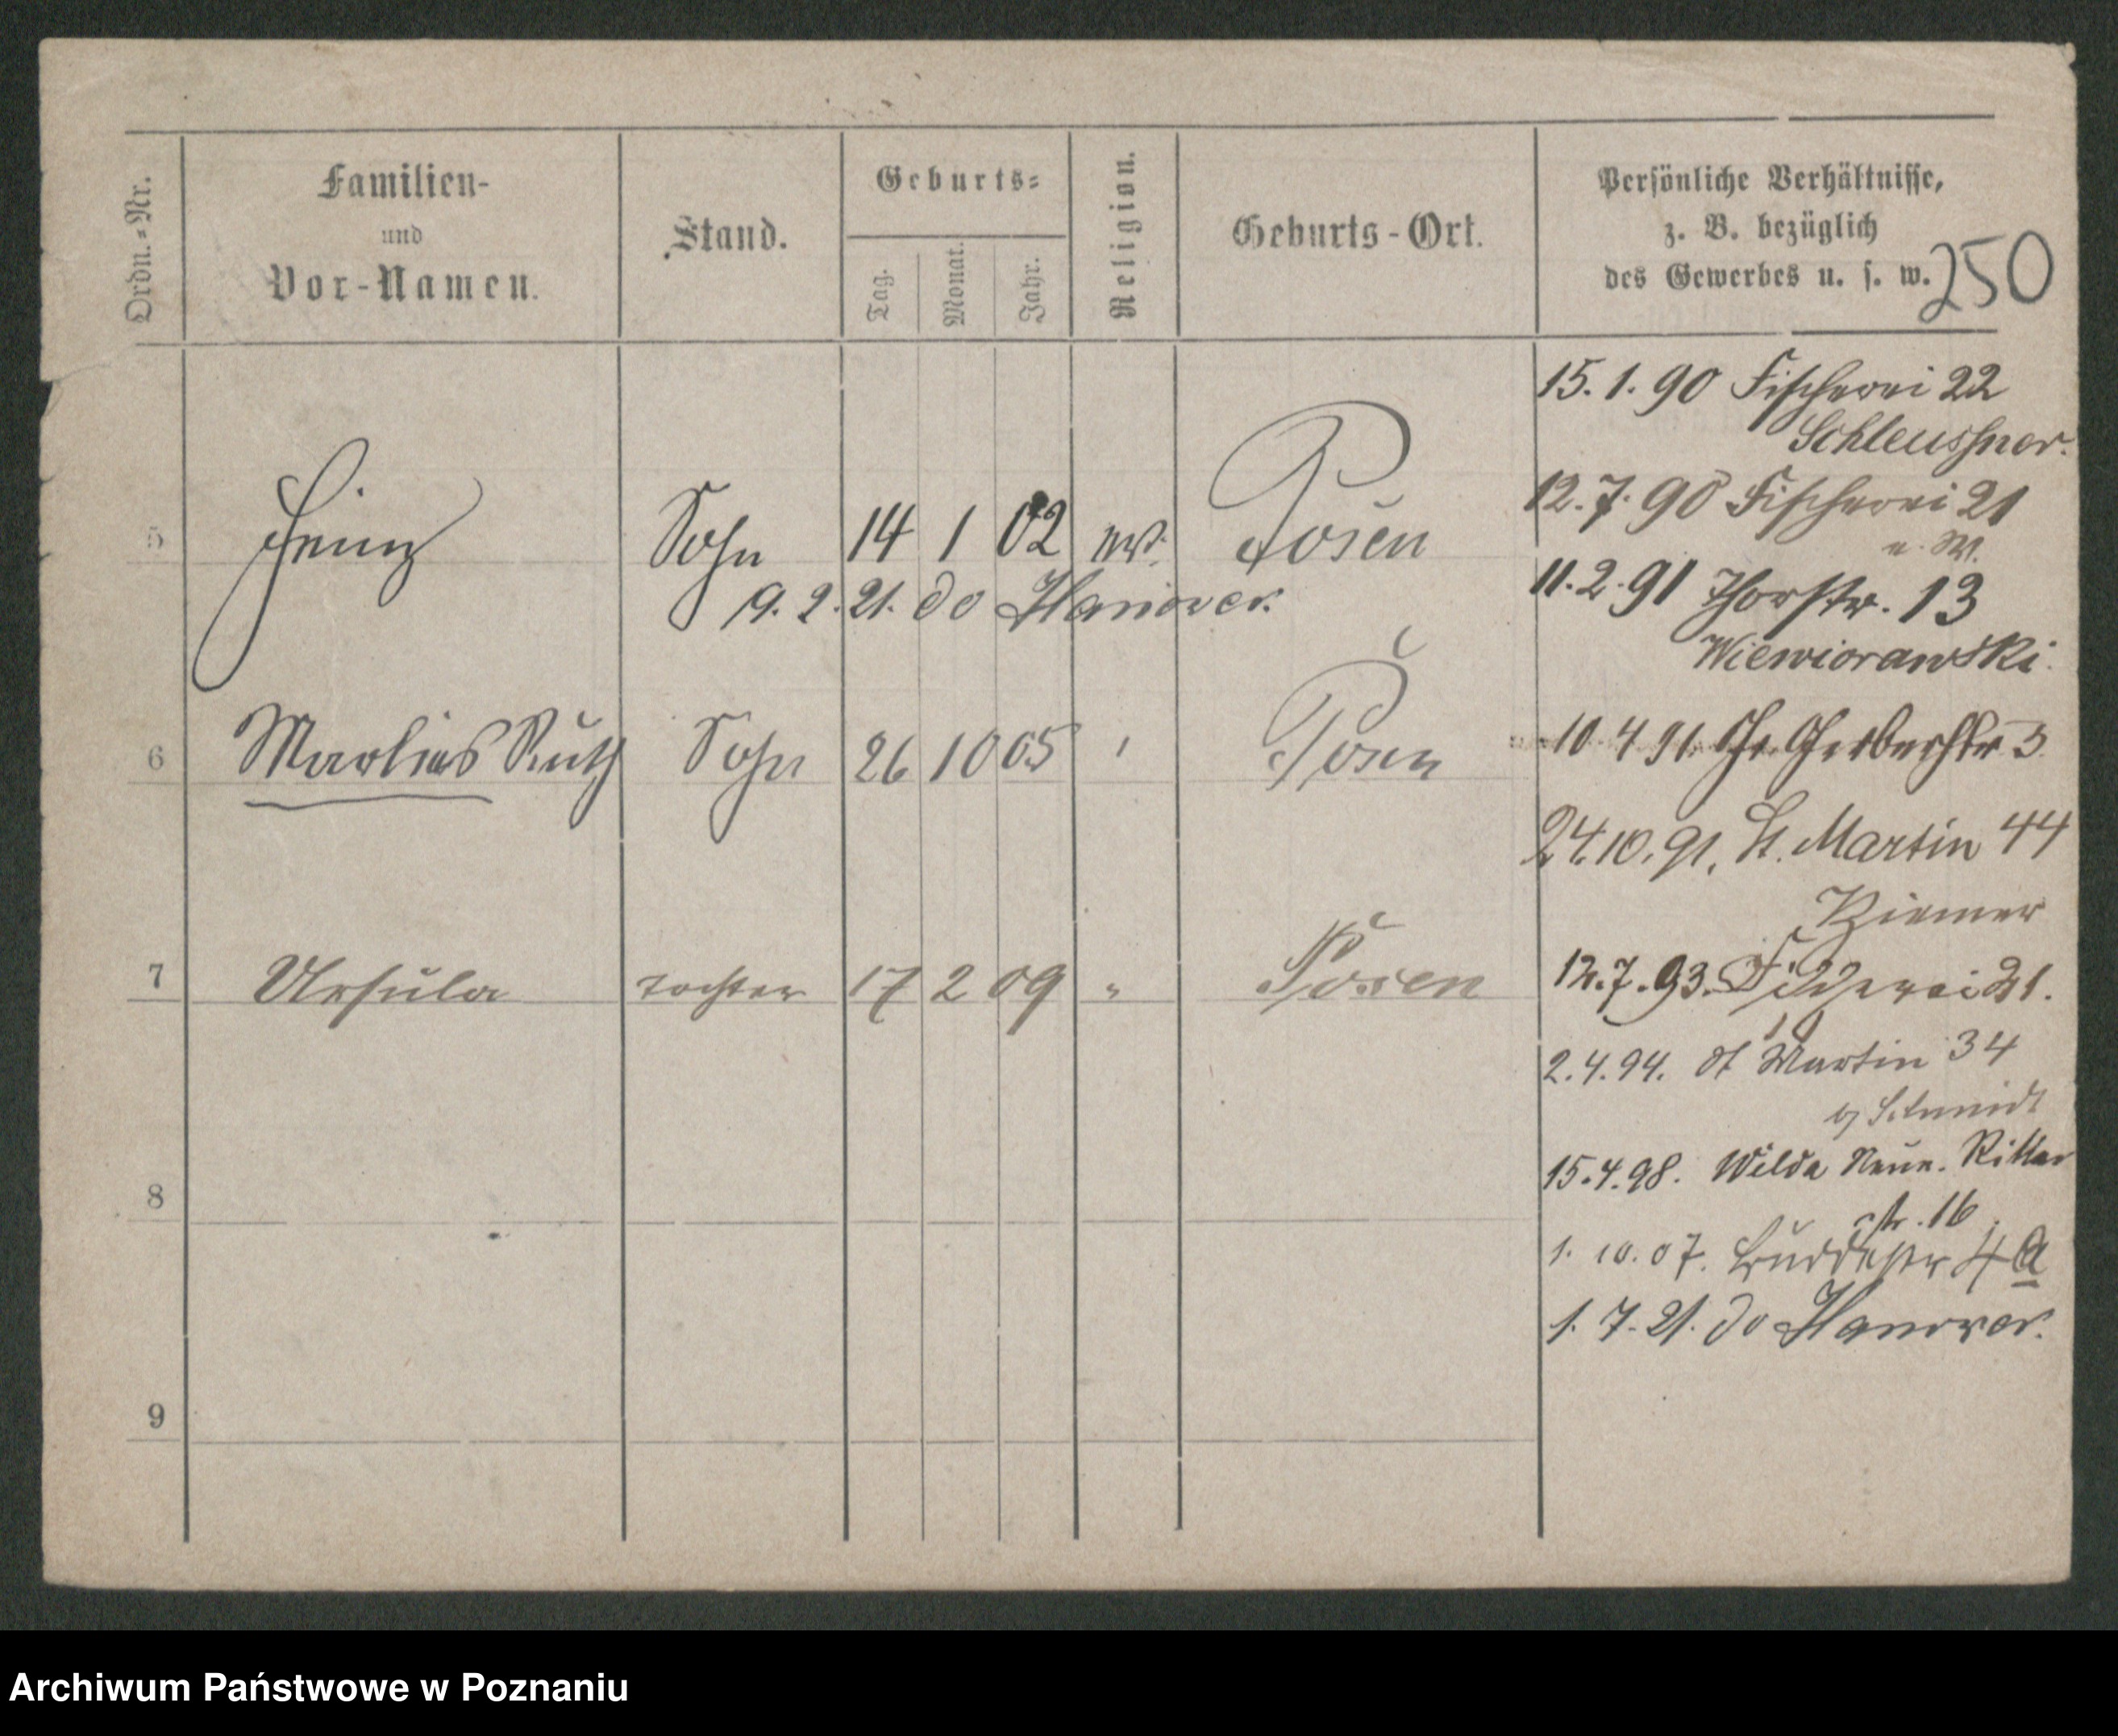 Ordn.-Nr.
Familien-
und
Vor-Namen.
Stand.
Geburts-
Tag.
Monat.
Jahr.
Religion.
Geburts-Ort.
Persönliche Verhältnisse,
z. B. bezüglich
des Gewerbes u. s. w.
250
5 Heinz Sohn 14 1 02 Posen
9.2.21. do Hanower.
6 Marlies Ruth Sohn 26 10 05 Posen
7 Ursula Tochter 17 2 09 " Posen
8
9
15.1.90 Fischerei 22
Schleussner.
12.7.90 Fischerei 21
11.2.91 Thorstr. 13
Wiewiorawski.
10 4 91. Gr. Gerberstr 3
24.10.91. St. Martin 44
12.7.93. Fischerei 21.
2.4.94. St Martin 34
b/ Schmidt
15.4.98. Wilda Neue. Ritter
str. 16
1.10.07. 4a
1.7.21. do Hanower.
Archiwum Państwowe w Poznaniu